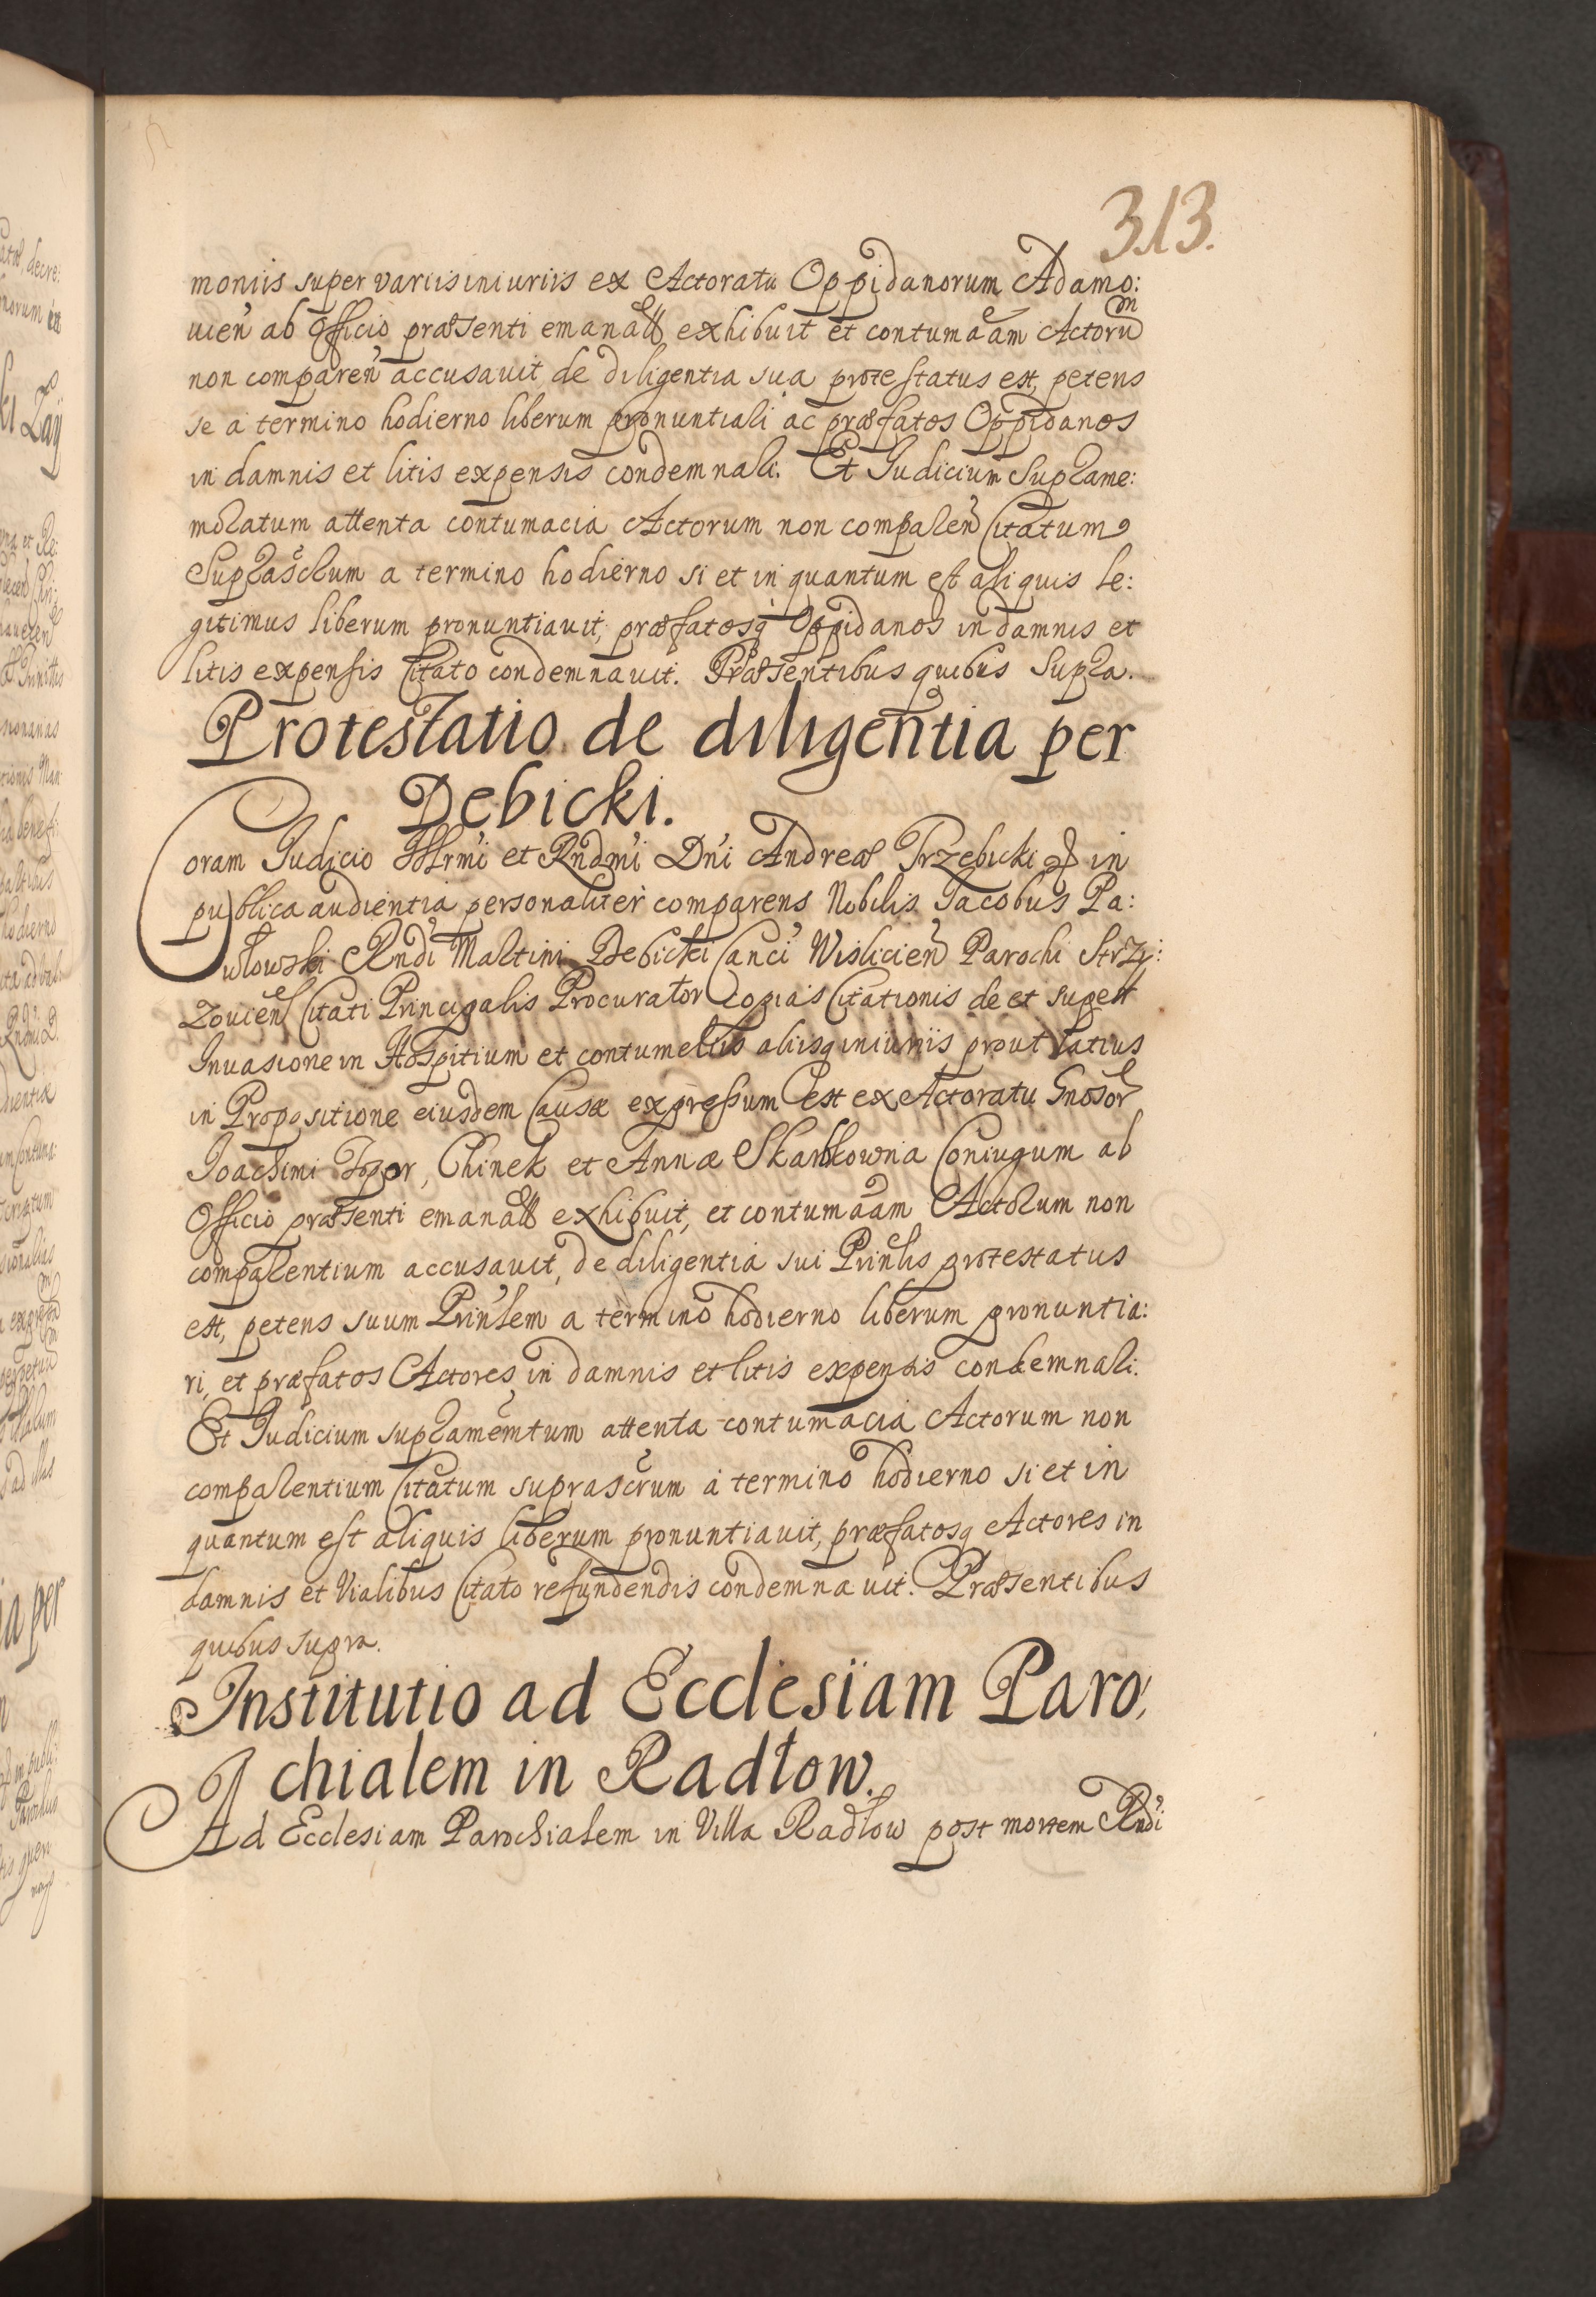 313.
moniis super variis iniuriis ex Actoratu Oppidanorum Adamo:
uien̄ ab Officio præsenti emanatt exhibuit et contumaām Actorum
non comparen̄ accusauit de diligentia sua protestatus est, petens
se a termino hodierno liberum pronuntiari ac præfatos Oppidanos
in damnis et litis expensis condemnari. Et Judicium Suprame:
moratum attenta contumacia Actorum non comparen̄ Citatum
Suprasc̄rum a termino hodierno si et in quantum est aliquis le:
gitimus liberum pronuntiauit, præfatosq̄ Oppidanos in damnis et
litis expensis Citato condemnauit. Præsentibus quibus Supra.
Protestatio de diligentia per
Debicki.
Coram Judicio Illrm̄i et Rndm̄i Dn̄i Andreæ Trzebicki in
publica audientia personaliter comparens Nobilis Jacobus Pa:
włowski Rndi Martini Debicki Canci Wislicien̄ Parochi Strzy:
zouien̄ Citati Principalis Procurator copias Citationis de et super
Inuasione in Hospitium et contumeliis aliisq iniuriis prout latius
in Propositione eiusdem Causæ expressum est ex Actoratu Gnosor
Joachimi Chinek et Annæ Skarbkowna Coniugum ab
Officio præsenti emanatt exhibuit, et contumaām Actorum non
comparentium accusauit, de diligentia sui Prinlis protestatus
est, petens suum Prin̄lem a termino hodierno liberum pronuntia:
ri, et præfatos Actores in damnis et litis expensis condemnari.
Et Judicium supramem̄tum attenta contumacia Actorum non
comparentium Citatum suprascr̄um a termino hodierno si et in
quantum est aliquis liberum pronuntiauit, præfatosq Actores in
damnis et Vialibus Citato refundendis condemnauit. Præsentibus
quibus supra.
Institutio ad Ecclesiam Paro,
chialem in Radłow.
Ad Ecclesiam Parochialem in Villa Radłow post mortem Rndi